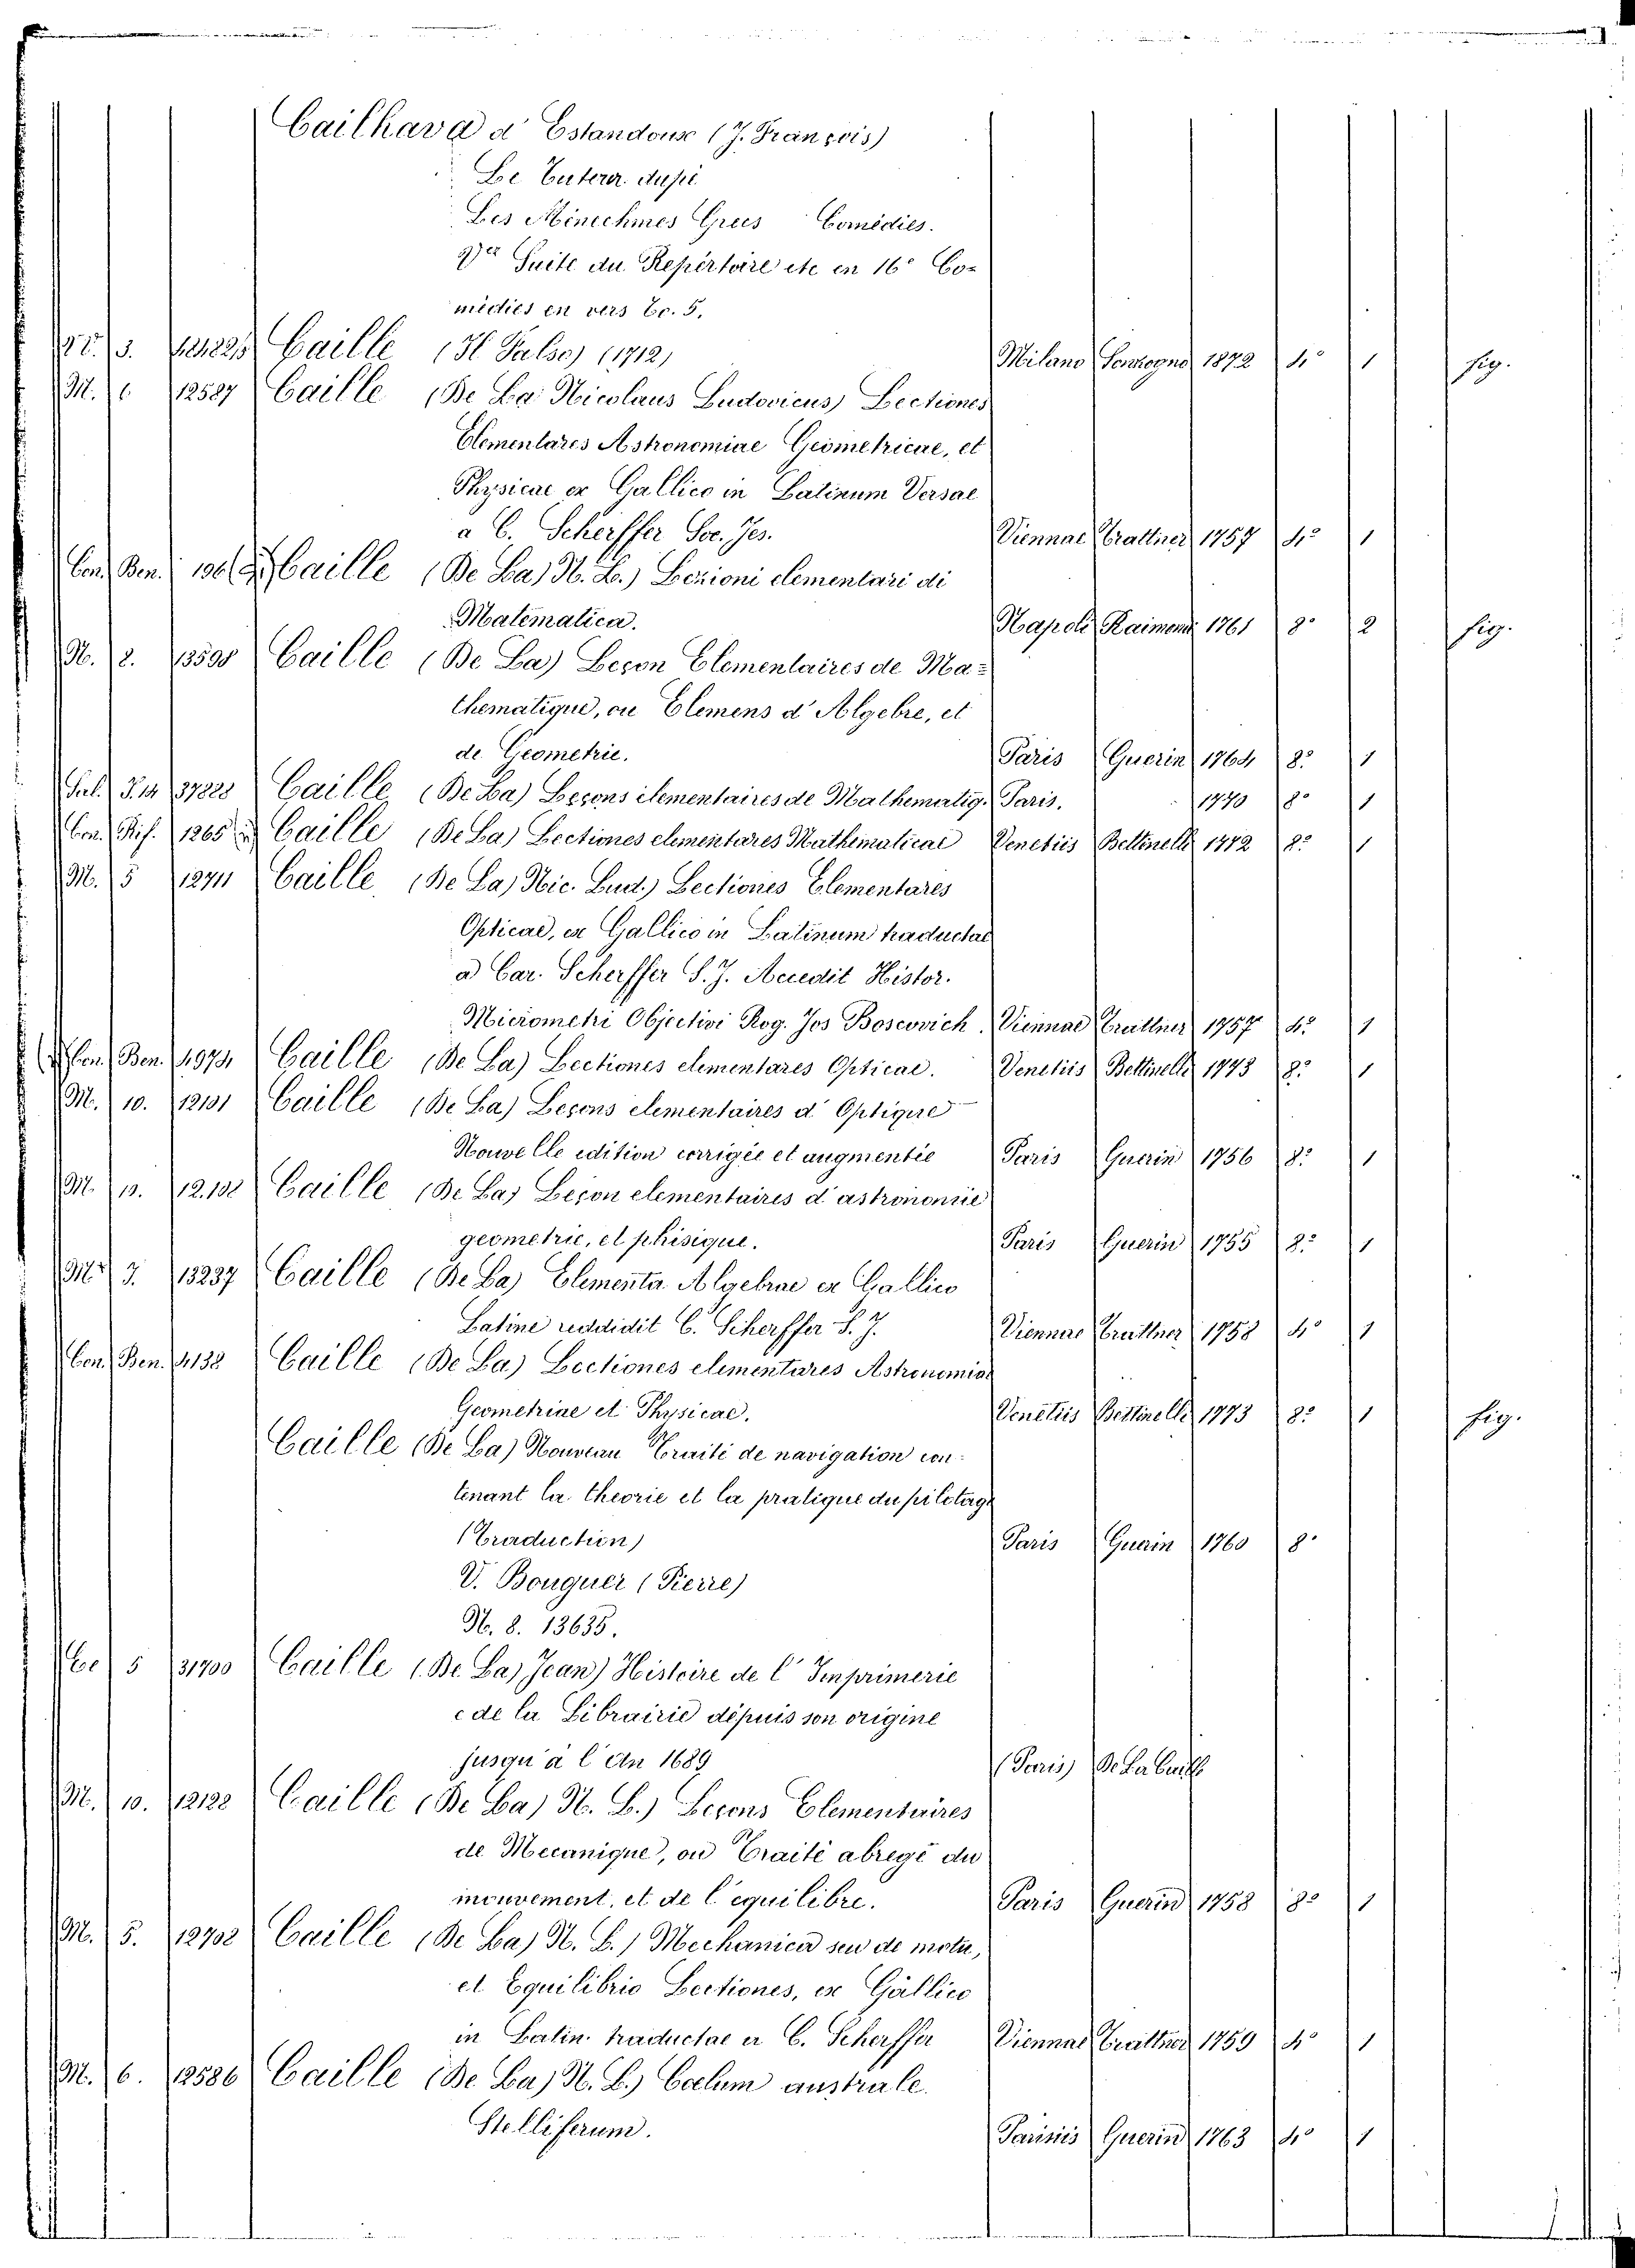 Cailhava d' Estandoux (J. François)
Le Tuteur dupé
Les Ménechmes Grecs Comédies.
V. Suite du Repértoire etc in 16° Co-
médies en vers To. 5.
3. Caille (Il Falso) (1712) Milano Sonzogno 1872 4° 1 fig.
M. 6 12587 Caille (De La Nicolaus Ludovicus) Lectiones
Elementares Astronomiae Geometricae, et
Physicae ex Gallico in Latinum Versae
a C. Scherffer Soc. Jes. Viennae Trattner 1757 4° 1
Con. Ben. Caille (De La) N. L.) Lezioni elementari di
Matematica. Napoli Raimond. 1761 8° 2 fig.
N. 2. 13505 Caille (De La) Leçon Elementaires de Ma=
thematique, ou Elemens d' Algebre, et
de Geometrie. Paris Guerin 1764 8° 1
Sal. F. 14 37828 Caille (De La) Leçons élementaires de Mathematiq. Paris. 1770 8° 1
Con. Rif. 1265 Caille (De La) Lectiones elementares Mathematicae Venetiis Bettinelli 1772 8° 1
M. 5 12711 Caille (De La) Nic. Lud.) Lectiones Elementares
Opticae, ex Gallico in Latinum traductae
a Car. Scherffer S. J. Accedit Histor.
Micrometri Objectivi Rog. Jos Boscovich. Viennae Trattner 1757 4° 1
Con. Ben. 4974 Caille (De La) Lectiones elementares Opticae. Venetiis Bettinelli 1773 8° 1
M. 10. 12101 Caille (De La) Leçons elementaires d' Optique
Nouvelle edition corrigée et augmentée Paris Guerin 1756 8° 1
M. 10. 12.102 Caille (De La) Leçon elementaires d' astronomie
geometrie, et phisique. Paris Guerin 1755 8° 1
M. 7. 13237 Caille (De La) Elementa Algebrae ex Gallico
Latine reddidit C. Scherffer S. J. Viennae Trattner 1758 4° 1
Con. Ben. 4132 Caille (De La) Lectiones elementares Astronomiae
Geometriae et Physicae. Venetiis Bettinelli 1773 8° 1 fig.
Caille (De La) Nouveau Traité de navigation con=
tenant la theorie et la pratique du pilotage
(Traduction) Paris Guerin 1760 8°
V. Bouguer (Pierre)
N. 8. 13635.
5 31700 Caille (De La) Jean) Histoire de l' Imprimerie
e de la Librairie dépuis son origine
jusqu'à l'An 1689 (Paris) De La Caille
M. 10. 12122 Caille (De La) N. L.) Leçons Elementaires
de Mecanique, ou Traité abregé du
mouvement, et de l'equilibre. Paris Guerin 1758 8° 1
M. 5. 12702 Caille (De La) N. L.) Mechanica seu de motu,
et Equilibrio Lectiones, ex Gallico
in Latin. traductae a C. Scherffer Viennae Trattner 1759 4° 1
M. 6. 12586 Caille (De La) N. L.) Coelum australe
Stelliferum. Parisiis Guerin 1763 4° 1